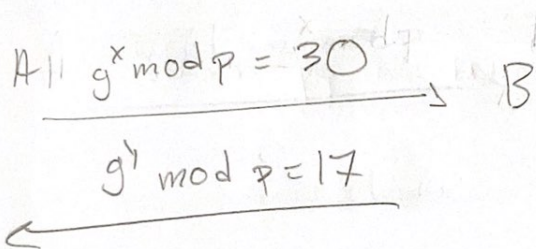 A || gˣ mod p = 30
B
gʸ mod p = 17